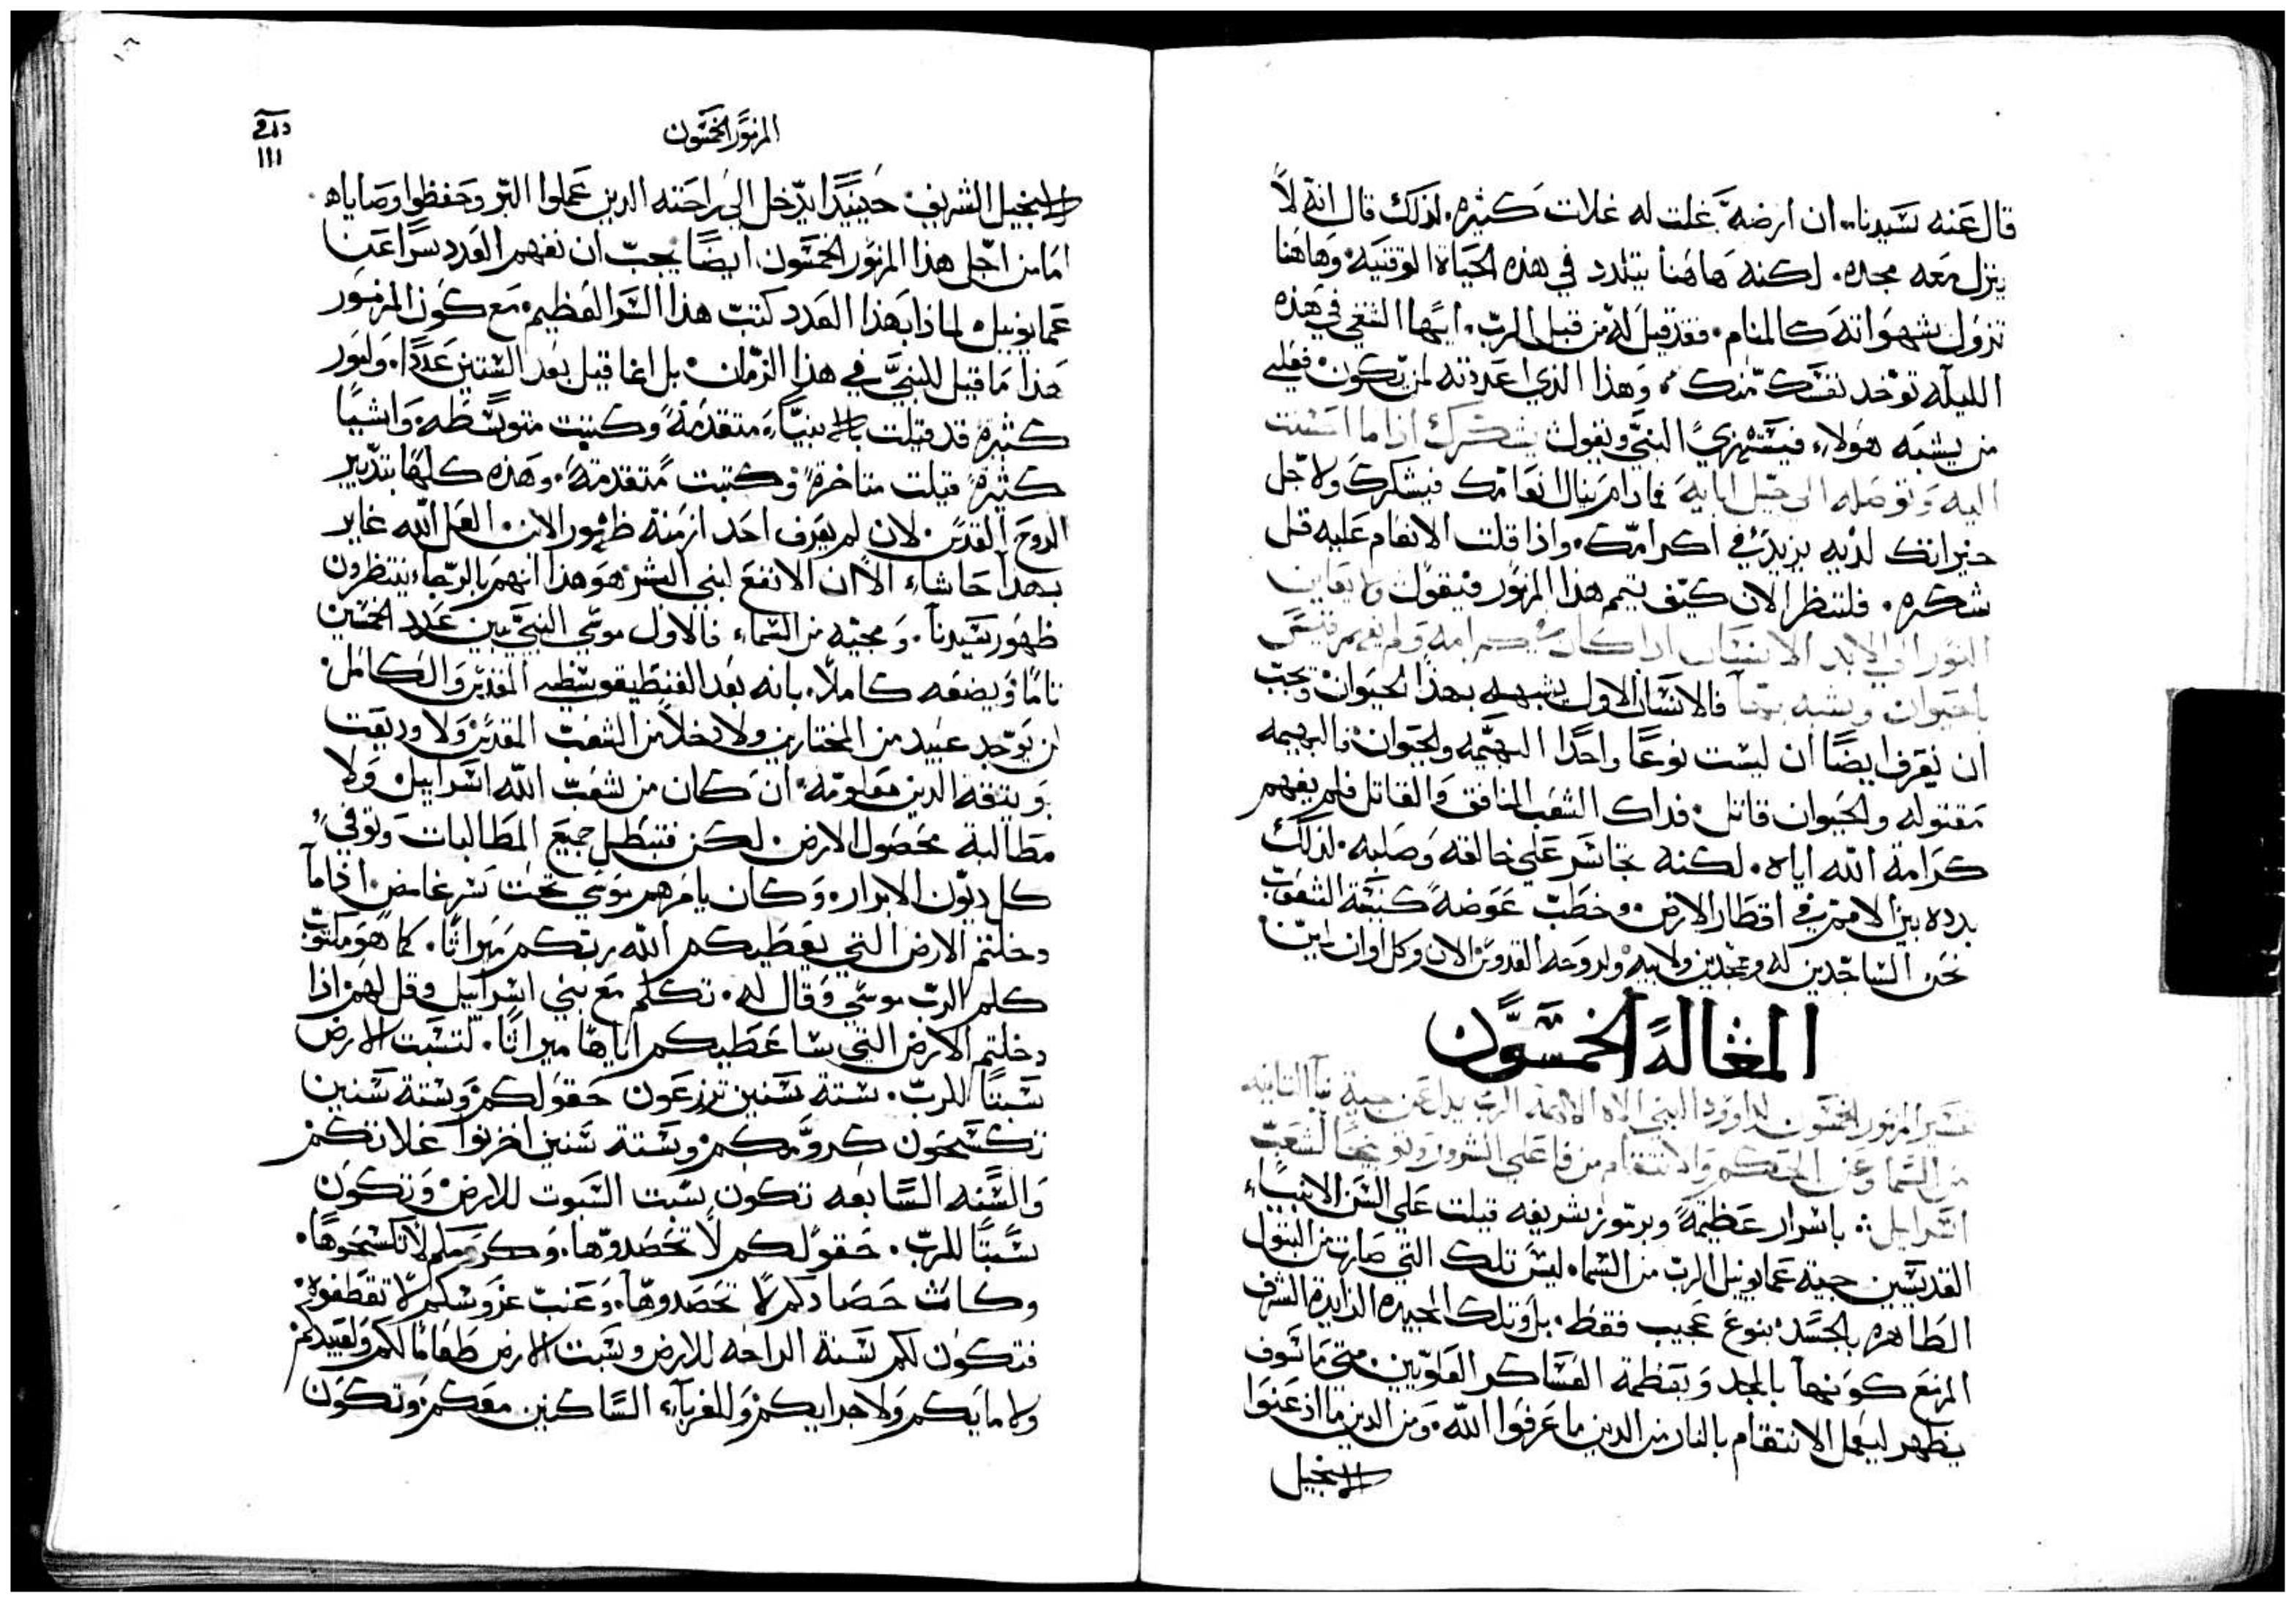 قال عنه سيدنا.. ان ارضه غلت له غلات كثيره. لذلك قال انه لا
ينزل معه مجده. لكنه هاهنا يتلدد في هذه الحياة الوقتيه. وهاهنا
تزول شهواته كالمنام. فقد قيل له من قبل الرب. ايها الشقي في هذه
الليله توخد نفسك منك. وهذا الذي اعددته لمن يكون فعلي
من يشبه هولاء فيستهزي النبي ويقول يشكرك اذا ما احسنت
اليه وتوصله الى جيل ابايه فمادام ينال انعامك فيشكرك ولاجل
خيراتك لديه يزيد في اكرامك. واذا قلت الانعام عليه قل
شكره. فلننظر الان كيف يتمم هذا المزمور فيقول لا يعاين
النور الى الابد الانسان اذا كان في كرامه ولم يفهم فيقس
بالحيوان ويشبه بها فالانسان الاول يشبهه بهذا الحيوان ويجب
ان نعرف ايضًا ان ليست نوعًا واحدًا البهيمه والحيوان فالبهيمه
مقتوله والحيوان قاتل. فداك الشعب المنافق والقاتل فلم يفهم
كرامة الله اياه. لكنه تجاسر على خالقه وصلبه. لذلك
بدده بين الامم في اقطار الارض وخطب عوضه كنيسة الشعوب
نحن الساجدين له وممجدين ولابيه ولروحه القدوس الان وكل اوان امين
المقالة الخمسون
تفسير المزمور الخمسون لداود النبي الاه الالهه الرب يدل عن جيته الثانيه
من السما وعن الحكم والانتقام من فاعلي الشرور وتوبيخًا لشعب
اسرايل: باسرار عظيمة وبرموز شريفه قيلت على السن الانبياء
القديسين جية عمانوييل الرب من السماء. ليس تلك التي صارت من البتول
الطاهره بالجسد بنوع عجيب فقط. بل وتلك المجيده الزايدة الشرف
المزمع كونها بالمجد وبعظمة العساكر العلويين. متى ما سوف
يظهر ليعمل الانتقام بالنار من الدين ما عرفوا الله. ومن الدين ما ادعنوا
الانجيل
المزمور الخمسون
١١١
الانجيل الشريف حينيدًا يدخل الى راحته الدين عملوا البر وحفظوا وصاياه
اما من اجل هذا المزمور الخمسون ايضًا يجب ان نفهم العدد سرًا عن
عمانوييل لماذا بهذا العدد كتب هذا السر العظيم. مع كون المزمور
هذا ما قيل للنبي في هذا الزمان. بل انما قيل بعد الستين عددًا. وامور
كثيرة قد قيلت بالانبياء متقدمة وكتبت متوسطه. واشيا
كثيرة قيلت متاخرة وكتبت متقدمة. وهذه كلها بتدبير
الروح القدس. لان لم يعرف احد ازمنة ظهور الابن. العل الله غاير
بهذا حاشاء الا ان الانفع لبني البشر هو هذا انهم بالرجاء ينتظرون
ظهور سيدنا. ومجيه من السماء فالاول موسي النبي يبين عدد الخمسين
تامًا ويضعه كاملًا. بانه بعد الفنطيقوسطي المقدس والكامل
لن يوجد عبيد من المختارين ولا دخلا من الشعب المقدس ولا وديعت
ويتقه الدين معلومة ان كان من شعب الله اسراييل ولا
مطالبة محصول الارض لكن فتبطل جميع المطالبات وتوفي
كل ديون الابرار. وكان يامرهم موسي تحت سر غامض اذا ما
دخلتم الارض التي يعطيكم الله ربكم ميراثًا. كما هو مكتوب
كلم الرب موسي وقال له. تكلم مع بني اسراييل وقل لهم اذا
دخلتم الارض التي ساعطيكم اياها ميراثًا. لتسبت الارض
سبتًا للرب. ستة سنين تزرعون حقولكم وستة سنين
تكسحون كرومكم وستة سنين اخزنوا غلاتكم
والسنه السابعه تكون سبت السبوت للارض وتكون
سبتًا للرب. حقولكم لا تحصدوها. وكرومكم لا تكسحوها.
وكاث حصادكم لا تحصدوها. وعنب عروسكم لا تقطفوه
فتكون لكم سنة الراحه للارض وسبت الارض طعامًا لكم ولعبيدكم
ولامايكم ولاجرايكم وللغرباء الساكنين معكم وتكون